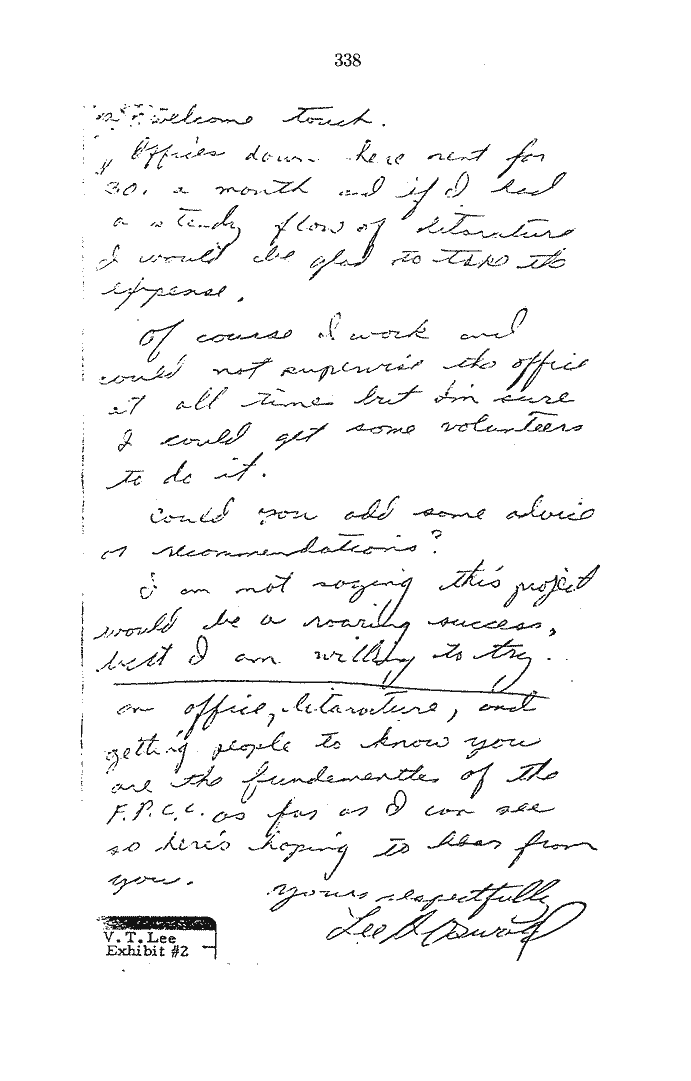 338
welcome touch.
Offices down here rent for
30. a month and if I had
a steady flow of litarature
I would be glad to take the
expense.
Of course I work and
could not supervise the office
at all times but I'm sure
I could get some volunteers
to do it.
Could you add some advice
or recommendations?
I am not saying this project
would be a roaring success,
but I am willing to try.
an office, litarature, and
getting people to know you
are the fundementles of the
F.P.C.C. as far as I can see
so here's hoping to hear from
you.
Yours respectfully
Lee H. Oswald
V. T. Lee
Exhibit #2